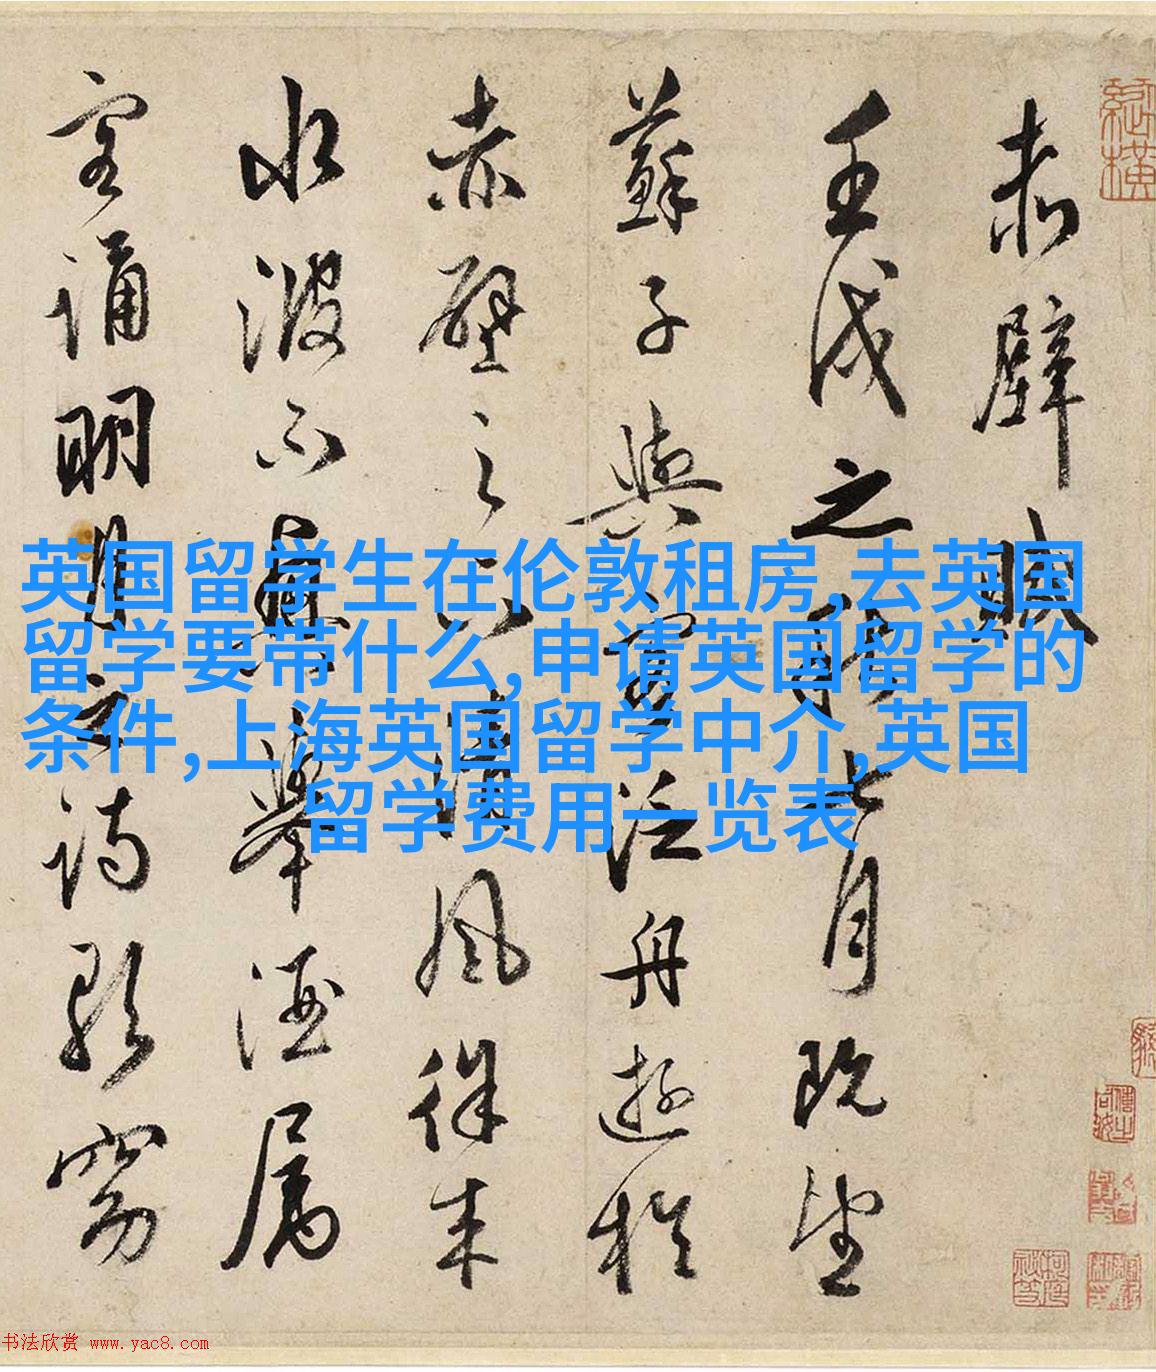 赤壁賦
壬戌之秋七月既望
蘇子與客泛舟遊於
赤壁之下清風徐來
水波不興舉酒屬
客誦明月之詩歌窈
英国留学生在伦敦租房,去英国
留学要带什么,申请英国留学的
条件,上海英国留学中介,英国
留学费用一览表
书法欣赏 www.yac8.com